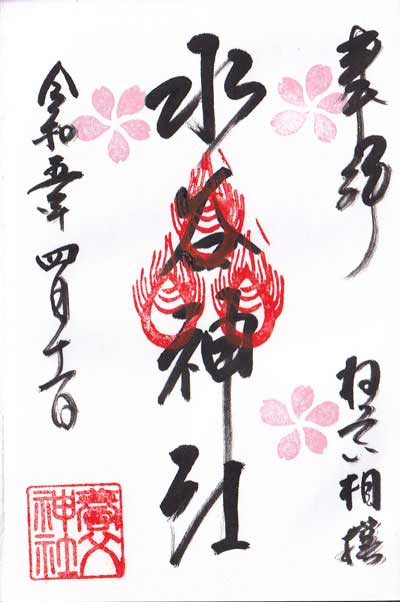 奉拝
ねってい相撲
水谷神社
令和五年四月十一日
養父
神社